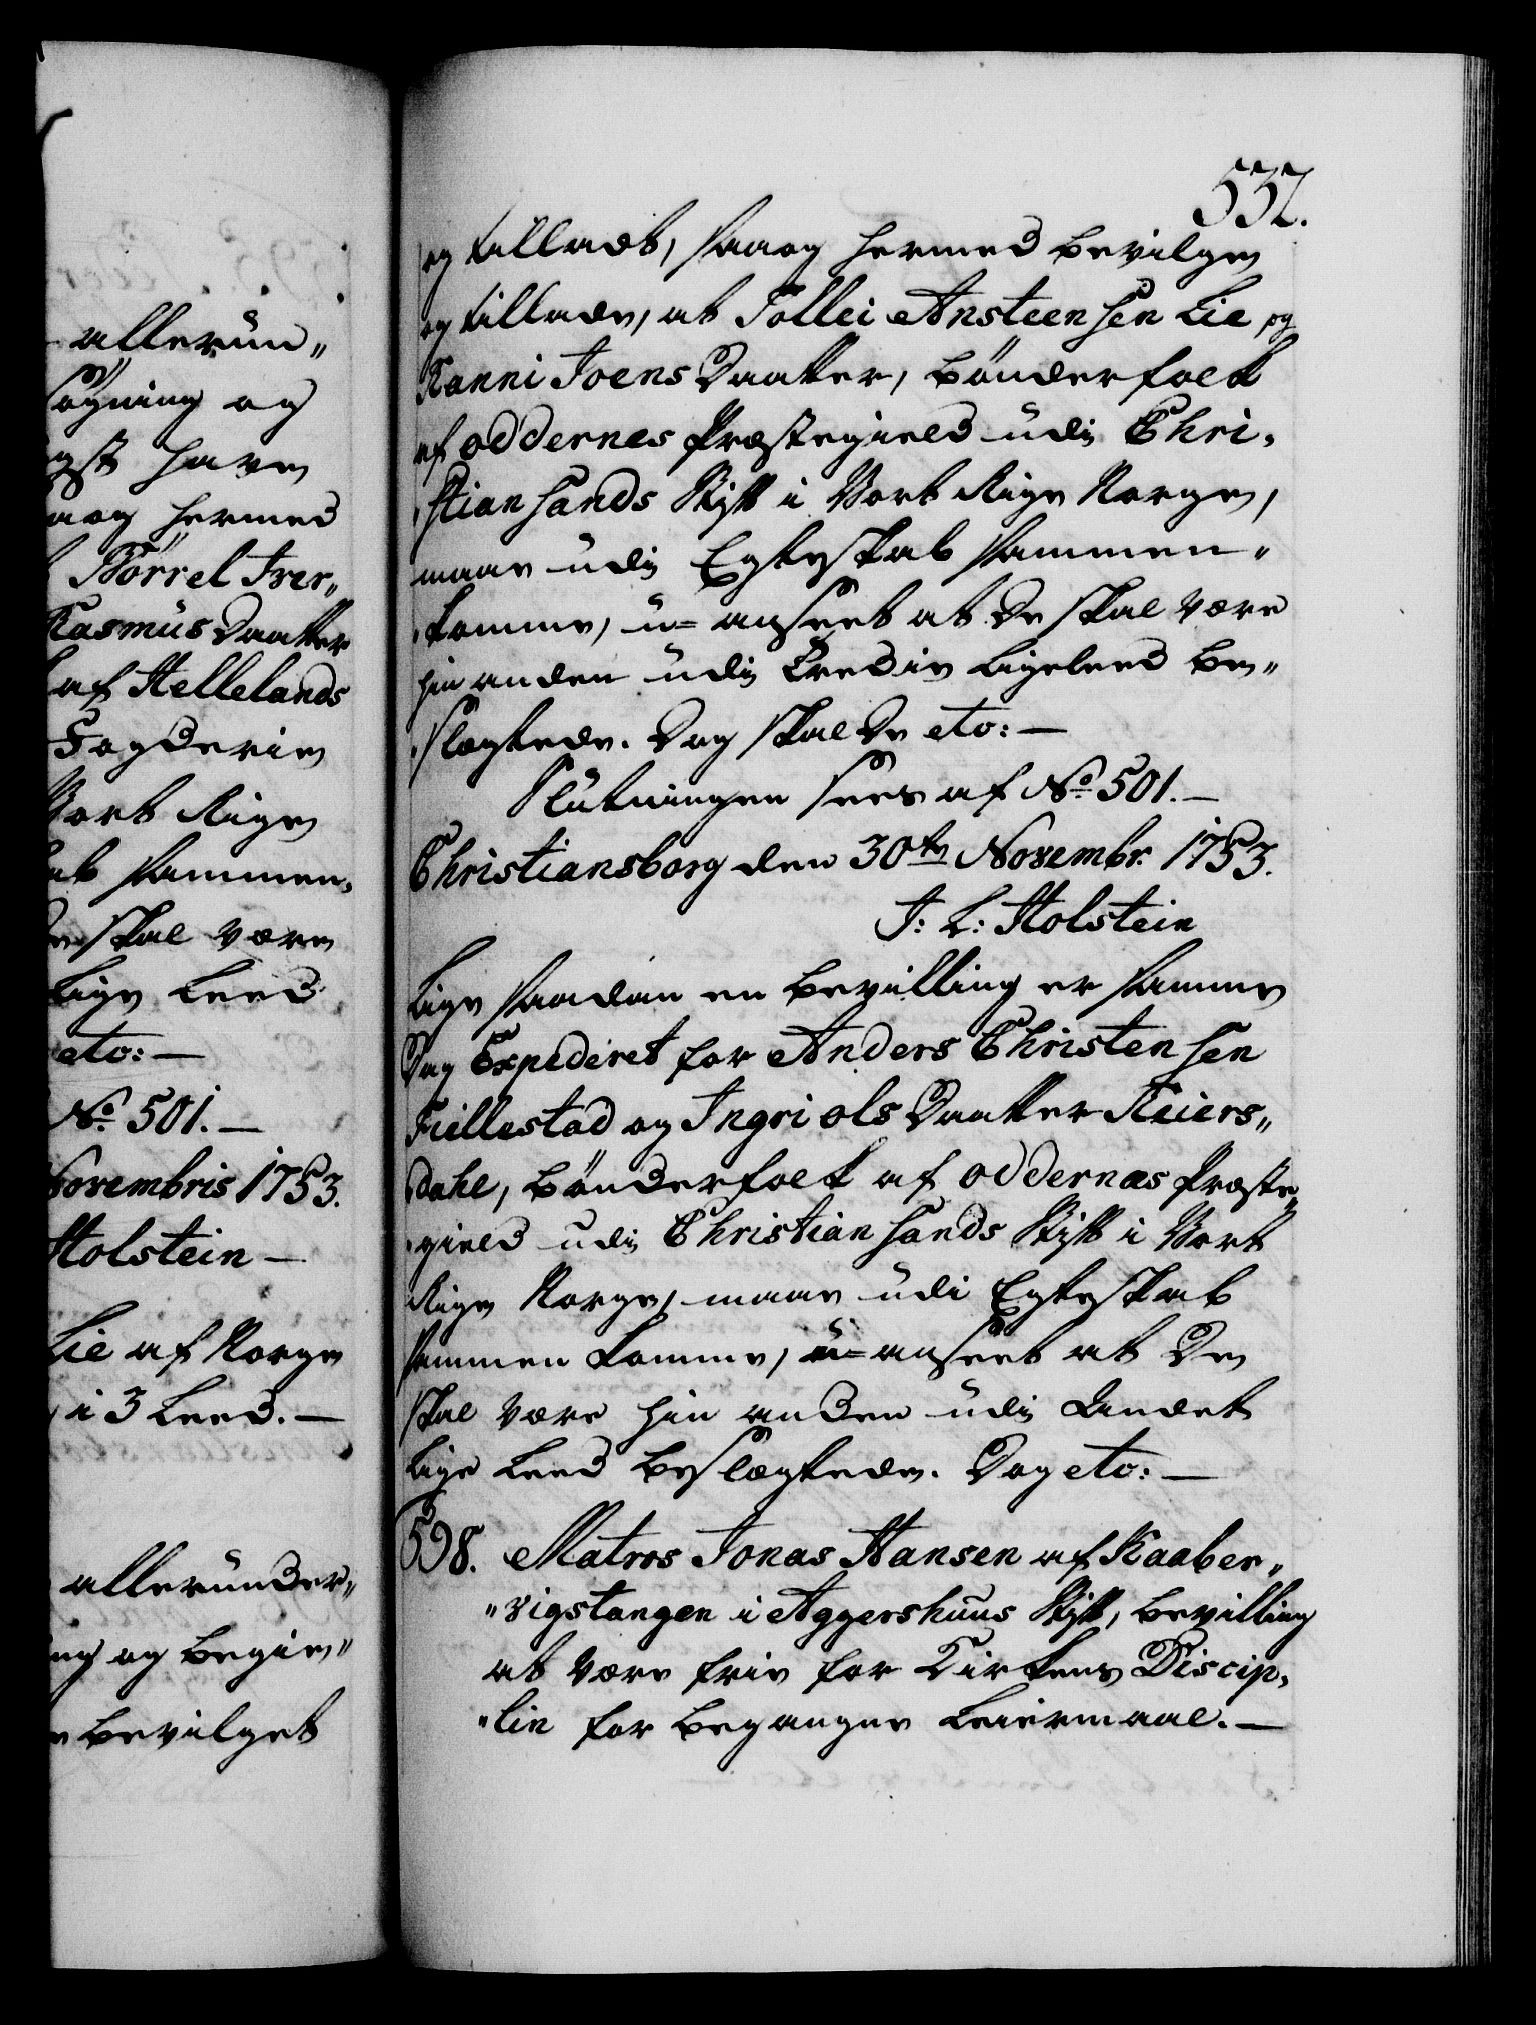 allerun„
søgning og
gst have
aaog hermed
Børrel Iver„
Rasmus Daatter
af Hellelands
Fogderie
Vort Rige
ab sammen„
De skal være
Lige Leed
etc:—
No 501.—
Novembris 1753.
Holstein—
Lie af Norge
i 3 Leed.—
allerunder„
ng og begier„
bevilget
532.
og tilladt, saaog hermed bevilge
og tillade, at Tollei Ansteensen Lie og
Kanni Joens Daatter, bønderfolk
af Oddernes Præstegield udi Chri„
„stiansands Stift i Vort Rige Norge,
maae udi Egteskab sammen„
„komme, u-anseet at De skal være
hinanden udi Tredie Ligeleed be„
„slægtede. Dog skal De etc:—
Slutningen sees af No 501.—
Christiansborg den 30te Novembr. 1753.
J: L: Holstein
Lige saadan en bevilling er samme
Dag Expederet for Anders Christensen
Fiellestad og Ingri Ols Daatter Reiers„
dahl, bønderfolk af Oddernæs Præste„
„gield udi Christiansands Stift i Vort
Rige Norge, maae udi Egteskab
sammen komme, u-anseet at De
skal være hin anden udi Andet
Lige Leed beslægtede. Dog etc:—
598. Matros Jonas Hansen af Kaaber„
„vigstangen i Aggershuus Stift, bevilling
at være frie for Kirkens Discip„
„lin for begangne Leiermaal.—